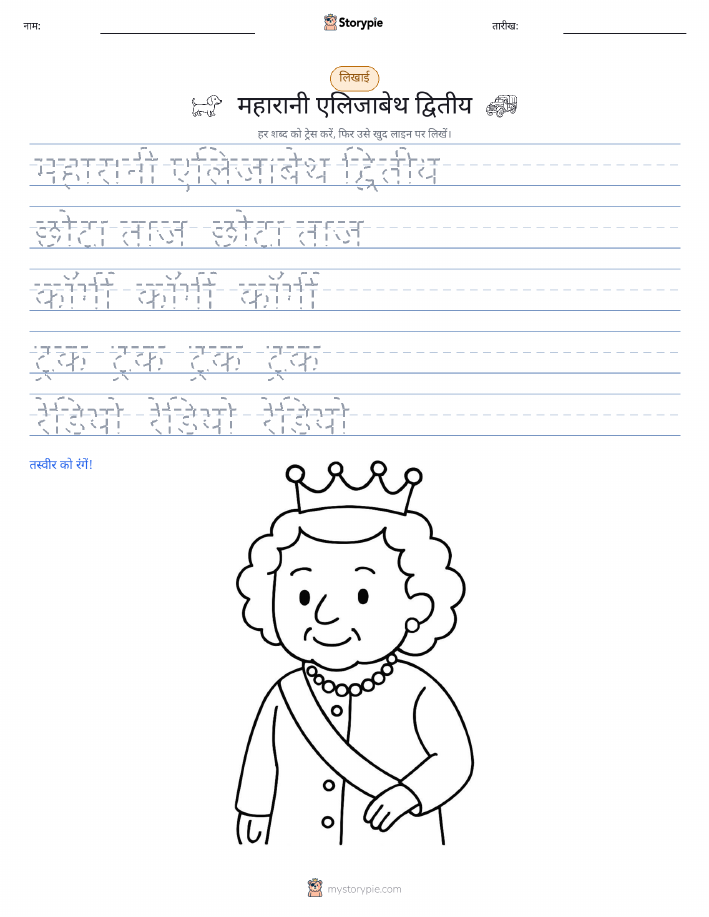 नाम:
Storypie
तारीख:
लिखाई
महारानी एलिजाबेथ द्वितीय
हर शब्द को ट्रेस करें, फिर उसे खुद लाइन पर लिखें।
महारानी एलिजाबेथ द्वितीय
छोटा ताज छोटा ताज
कॉर्गी कॉर्गी कॉर्गी
ट्रक ट्रक ट्रक ट्रक
रेडियो रेडियो रेडियो
तस्वीर को रंगें!
mystorypie.com